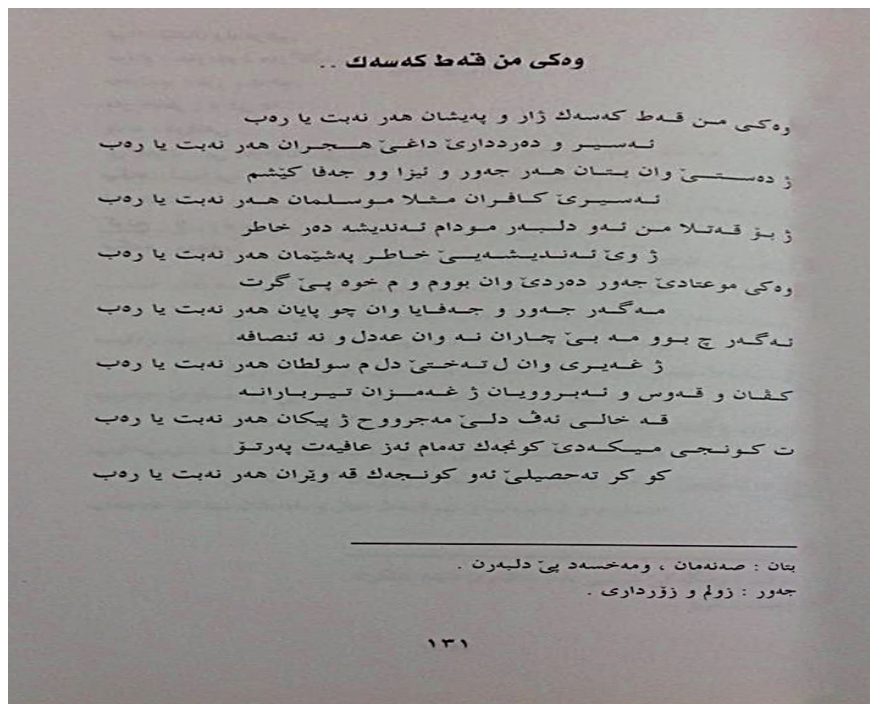 وەکی من قەط کەسەك ..
وەکی من قەط کەسەك ژار و پەیشان هەر نەبت یا رەب
ئەسیر و دەردداریێ داغێ هجران هەر نەبت یا رەب
ژ دەستێ وان بتان هەر جەور و ئیزا وو جەفا کێشم
ئەسیرێ کافران مثلا موسلمان هەر نەبت یا رەب
ژ بۆ قەتلا من ئەو دلبەر مودام ئەندیشە دەر خاطر
ژ وێ ئەندیشەیێ خاطر پەشێمان هەر نەبت یا رەب
وەکی موعتادێ جەور دەردێ وان بووم و م خوە پێ گرت
مەگەر جەور و جەفایا وان چو پایان هەر نەبت یا رەب
ئەگەر چ بوو مە بێ چاران نە وان عەدل و نە ئنصافە
ژ غەیری وان ل تەختێ دل م سولطان هەر نەبت یا رەب
کڤان و قەوس و ئەبروویان ژ غەمزان تیربارانە
قە خالی ئەڤ دلێ مەجرووح ژ پیکان هەر نەبت یا رەب
ت کونجی میکەدێ کونجەك تەمام ئەز عافیەت پەرتۆ
کو کر تەحصیلێ ئەو کونجەك قە وێران هەر نەبت یا رەب
بتان : صەنەمان ، ومەخسەد پێ دلبەرن .
جەور : زولم و زۆرداری .
١٣١